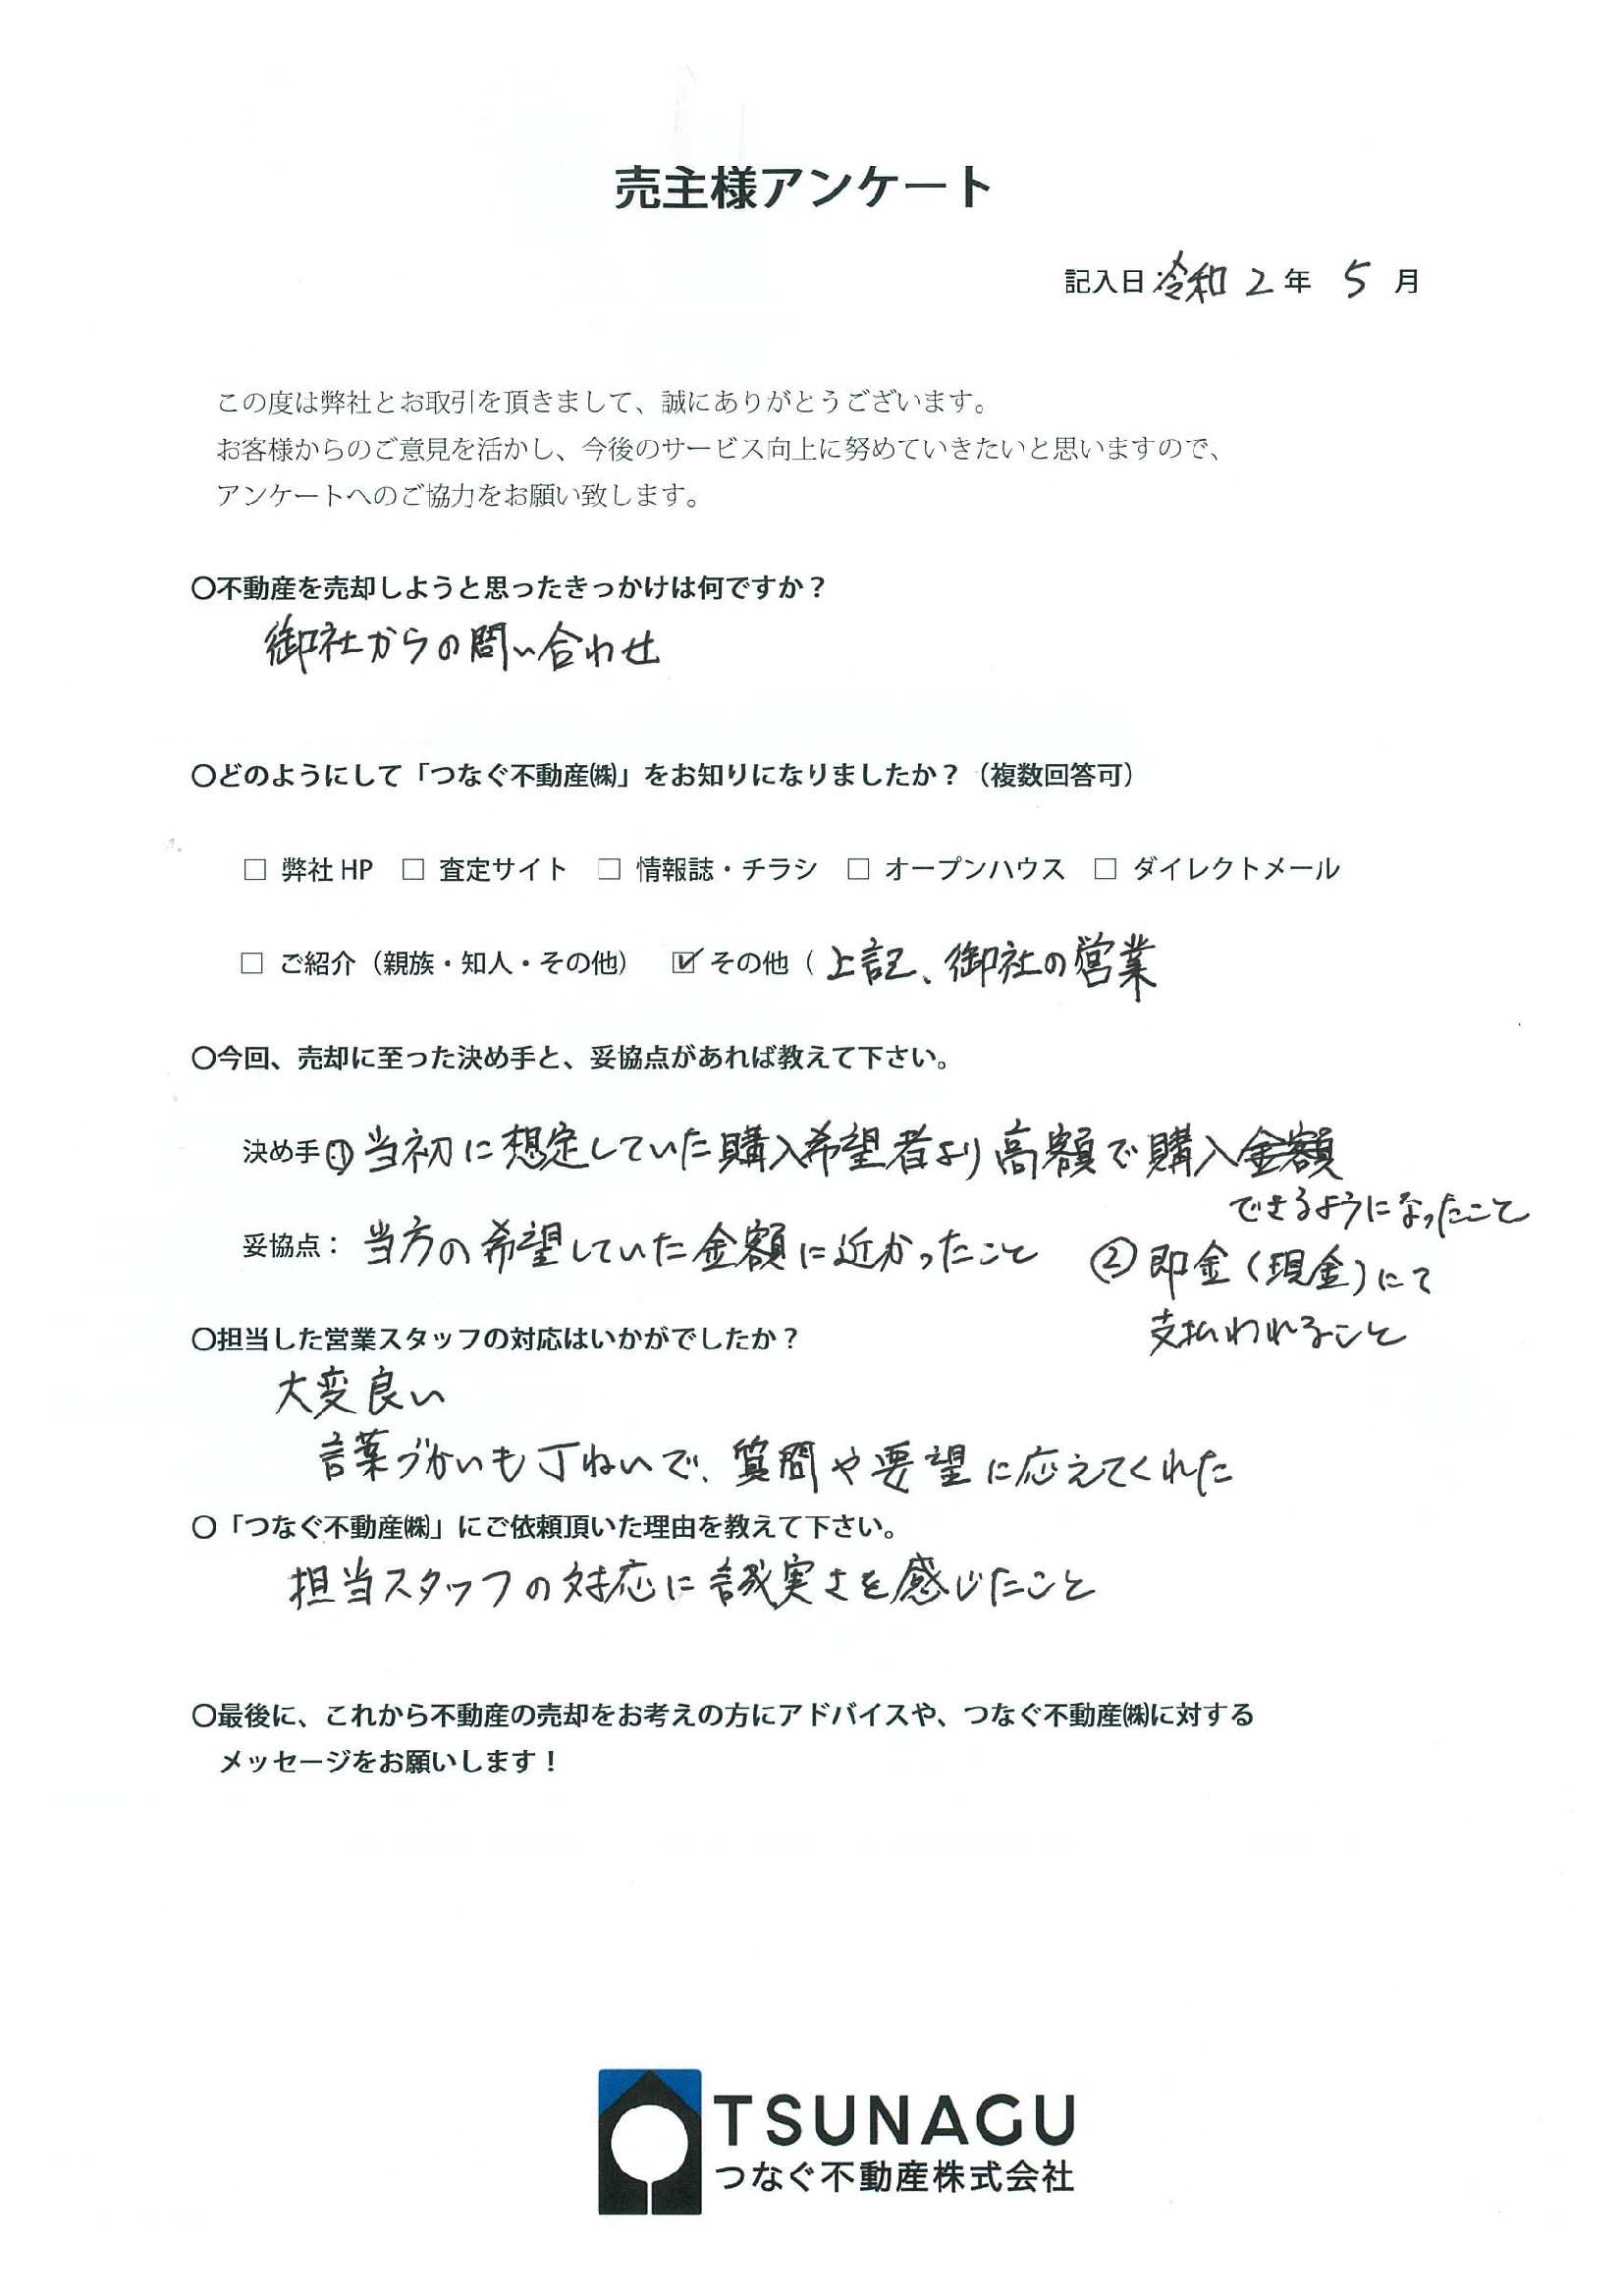 売主様アンケート
記入日 令和 2 年 5 月
この度は弊社とお取引を頂きまして、誠にありがとうございます。
お客様からのご意見を活かし、今後のサービス向上に努めていきたいと思いますので、
アンケートへのご協力をお願い致します。
〇不動産を売却しようと思ったきっかけは何ですか？
御社からの問い合わせ
〇どのようにして「つなぐ不動産㈱」をお知りになりましたか？（複数回答可）
□ 弊社 HP □ 査定サイト □ 情報誌・チラシ □ オープンハウス □ ダイレクトメール
□ ご紹介（親族・知人・その他） ☑ その他（ 上記、御社の営業
〇今回、売却に至った決め手と、妥協点があれば教えて下さい。
決め手 ① 当初に想定していた購入希望者より高額で購入金額
できるようになったこと
妥協点： 当方の希望していた金額に近かったこと ② 即金（現金）にて
支払われること
〇担当した営業スタッフの対応はいかがでしたか？
大変良い
言葉づかいも丁ねいで、質問や要望に応えてくれた
〇「つなぐ不動産㈱」にご依頼頂いた理由を教えて下さい。
担当スタッフの対応に誠実さを感じたこと
〇最後に、これから不動産の売却をお考えの方にアドバイスや、つなぐ不動産㈱に対する
メッセージをお願いします！
TSUNAGU
つなぐ不動産株式会社